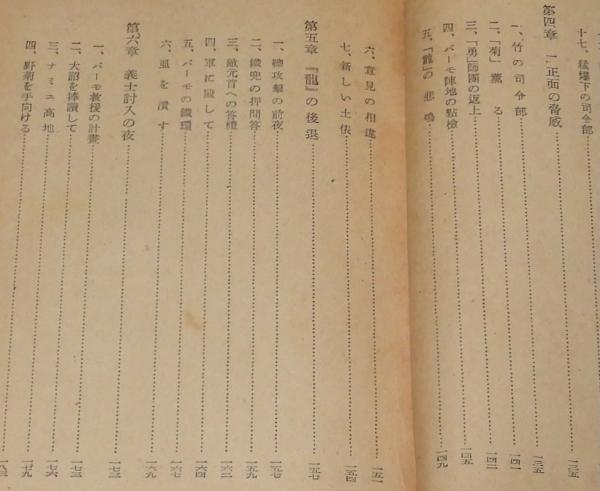 十七、猛爆下の司令部……一三五
第四章　二正面の脅威……一三五
一、竹の司令部……一四一
二、「菊」薫る……一四二
三、「勇」師團の返上……一四五
四、バーモ陣地の點檢……一四九
五、「龍」の悲鳴
六、意見の相違……一五一
七、新しい土俵……一五四
第五章　『龍』の後退……一五七
一、總攻擊の前夜……一五七
二、鐵兜の押問答……一五九
三、敵元首への答禮……一六二
四、軍に殿して……一六四
五、バーモの鐵環……一六七
六、虱を潰す……一六九
第六章　義士討入の夜……一七三
一、バーモ救援の計畫……一七三
二、大詔を捧讀して……一七三
三、ナミユ高地……一七六
四、野菊を手向ける……一七九
一八三